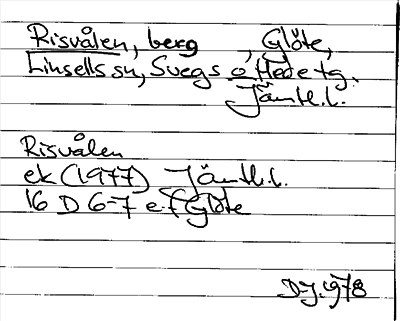 Risvålen, berg , Glöte,
Linsells sn, Svegs o. Hede tg.
Jämtl.l.
Risvålen
ek (1977) Jämtl.l.
16 D 6-7 e-f Glöte
DJ 1978